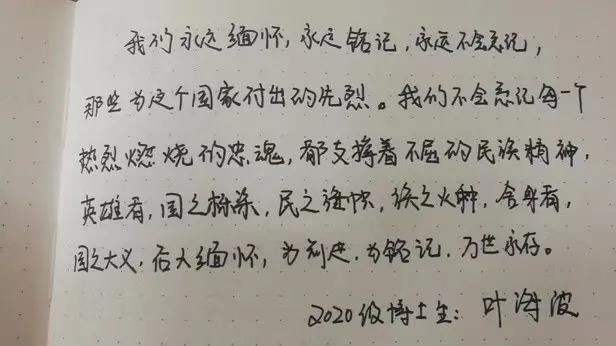 我们永远缅怀，永远铭记，永远不会忘记，
那些为这个国家付出的先烈。我们不会忘记每一个
热烈燃烧的忠魂，都支撑着不屈的民族精神，
英雄者，国之栋梁，民之海，族之火种，舍身者，
国之大义，后人缅怀，为，为铭记，万世永存。
2020级博士生：叶海波